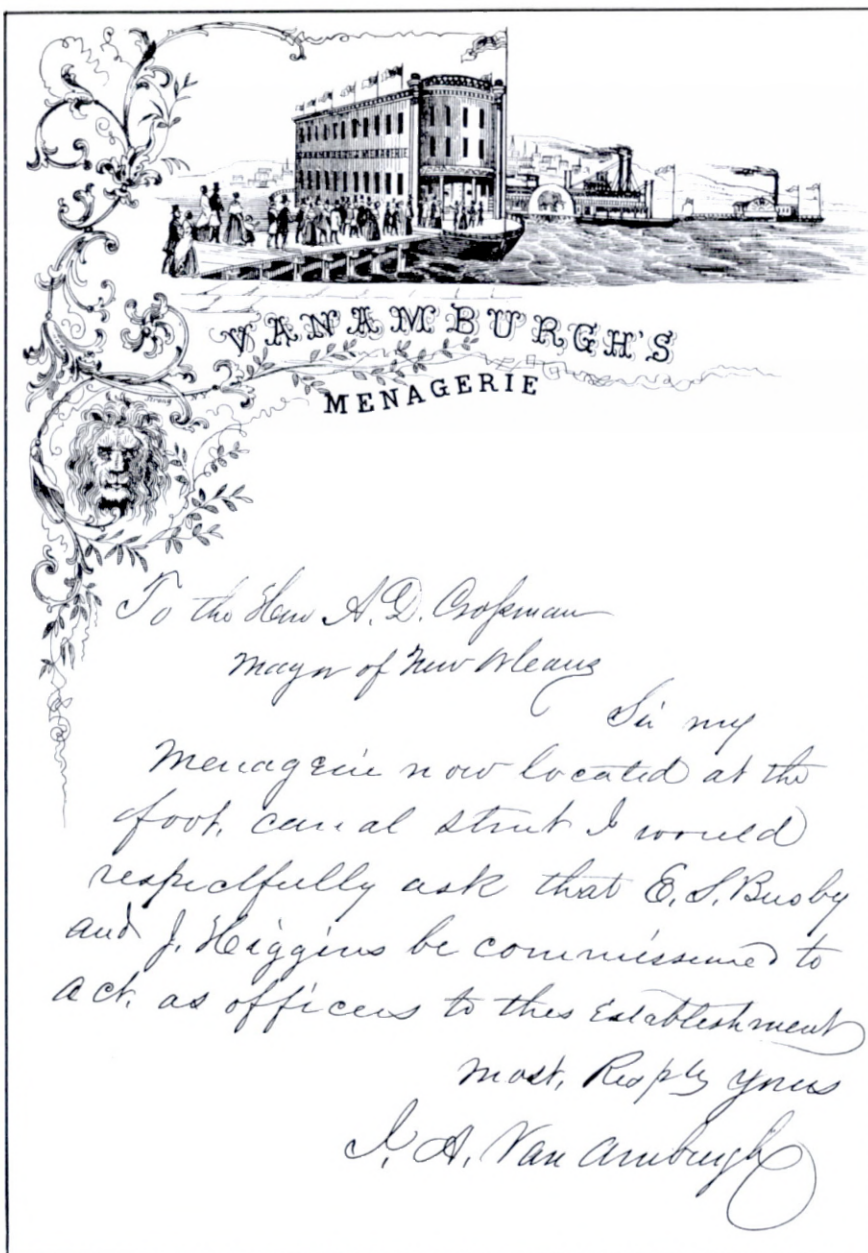 VANAMBURGH'S
MENAGERIE
To the Hon A. D. Crossman
Mayor of New Orleans
Sir my
Menagerie now located at the
foot, canal street I would
respectfully ask that E. S. Busby
and J. Higgins be commissioned to
act. as officers to this Establishment
most, Resply yours
I. A. Van Amburgh